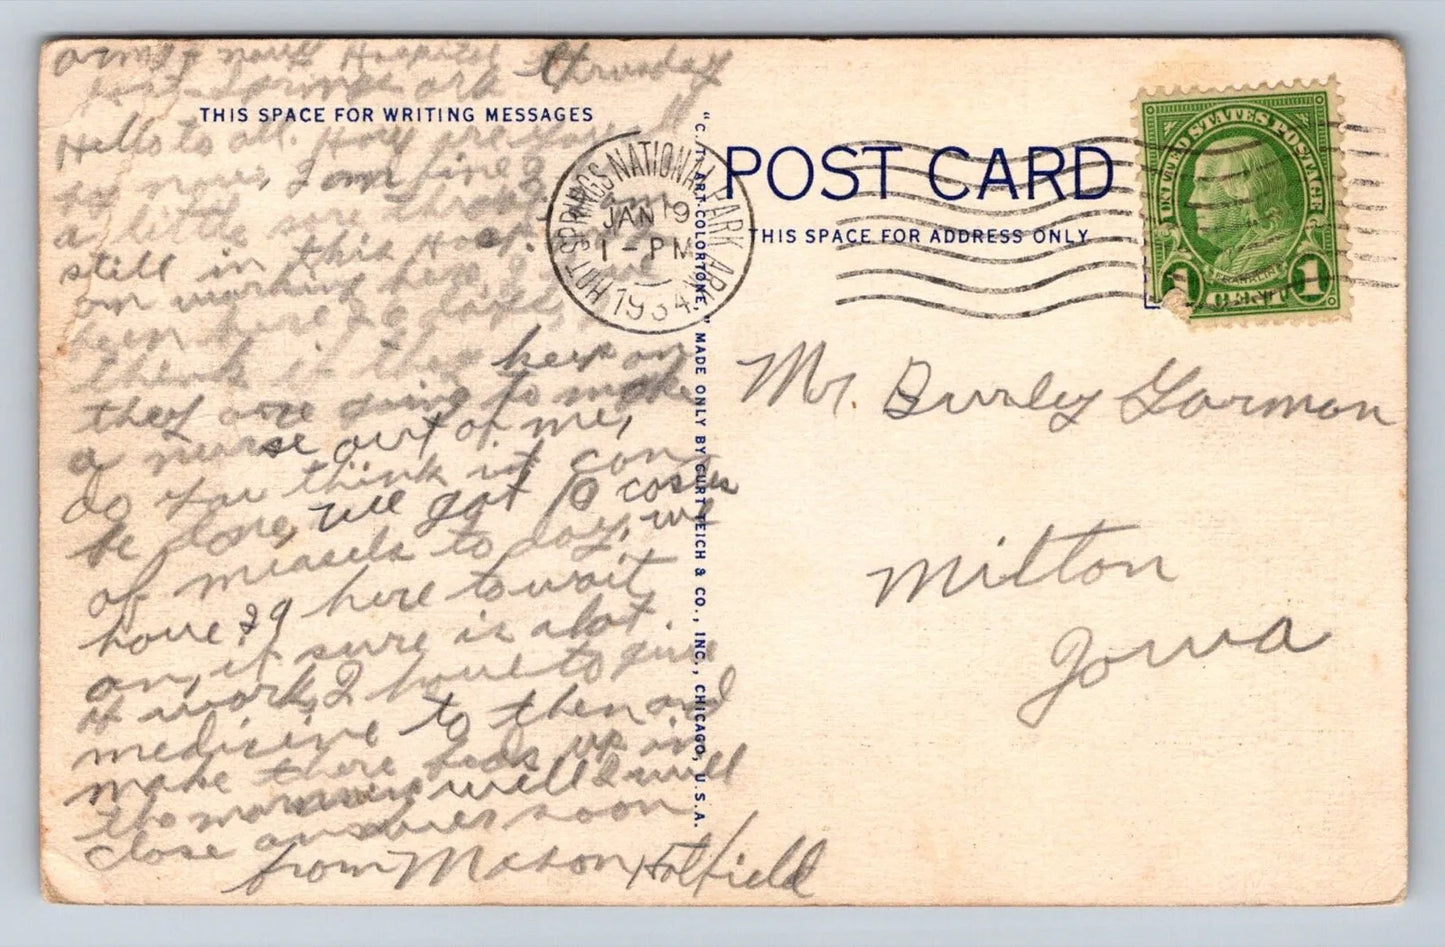 army & navy Hospital Thursday
Hot Springs ark
THIS SPACE FOR WRITING MESSAGES
Hello to all. How are you all
by now, I am fine &
a little sore throat
still in this Hospital
am working here, I have
been here 20 days,
think if they keep on
they are going to make
a nurse out of me,
do you think it can
be done, we got 10 cases
of measels to day, we
have 29 here to wait
on, it sure is a lot
of work, I have to give
medicine to then and
make there beds up in
the morning well I will
close answer soon
from Mason Hatfield
HOT SPRINGS NATIONAL PARK, ARK.
JAN 19
1 - PM
1934
"C. T. ART-COLORTONE," MADE ONLY BY CURT TEICH & CO., INC., CHICAGO, U.S.A.
POST CARD
THIS SPACE FOR ADDRESS ONLY
UNITED STATES POSTAGE
FRANKLIN
1 CENT 1
Mr. Burley Gorman
Milton
Iowa